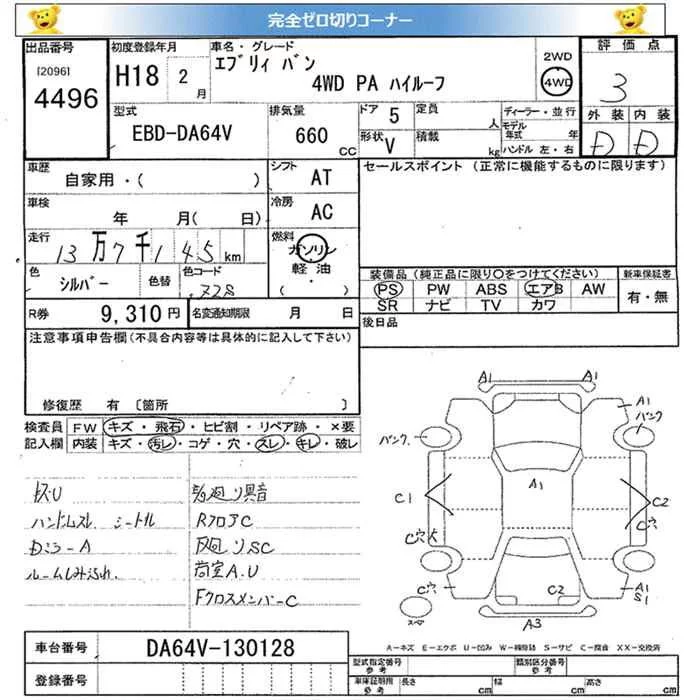 完全ゼロ切りコーナー
出品番号
[2096]
4496
初度登録年月
H18 2 月
車名・グレード
エブリィ バン
4WD PA ハイルーフ
2WD
4WD
評価点
3
外装 内装
D D
型式
EBD-DA64V
排気量
660 CC
ドア 5
形状 V
定員 人
積載 kg
ディーラー・並行
モデル年式 年
ハンドル 左・右
車歴
自家用・( )
シフト AT
車検
年 月( 日)
冷房 AC
走行
13万7千145 km
燃料
ガソリン
軽油
( ・ )
色
シルバー
色替
色コード
R券 9,310円
名変通知期限 月 日
セールスポイント (正常に機能するものに限ります)
装備品(純正品に限り○をつけてください)
新車保証書
PS PW ABS エアB AW
有・無
SR ナビ TV カワ
後日品
注意事項申告欄(不具合内容等は具体的に記入して下さい)
修復歴 有 〔箇所 〕
検査員記入欄
FW キズ・飛石・ヒビ割・リペア跡・×要
内装 キズ・汚レ・コゲ・穴・スレ・キレ・破レ
ハンドルスレ シートル
Dミラ-A
ルームしみ汚れ
RフロアC
荷室A.U
FクロスメンバーC
A1
A1
A1
バンク
バンク
A1
C1
C2
C穴
C穴
C穴
C2
A1
S1
A3
スペア
A-キズ E-エクボ U-凹み W-補修跡 S-サビ C-腐食 XX-交換済
車台番号 DA64V-130128
登録番号
型式指定番号
参考
類別区分番号
参考
車庫証明用
参考
長さ cm
幅 cm
高さ cm